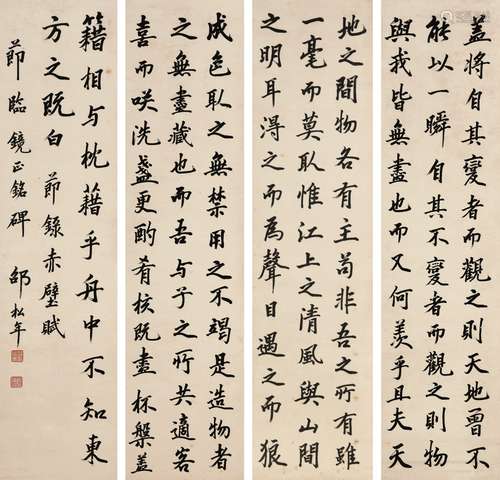 盖將自其變者而觀之則天地曾不
能以一瞬自其不變者而觀之則物
與我皆無盡也而又何羨乎且夫天
地之間物各有主苟非吾之所有雖
一毫而莫取惟江上之清風與山間
之明耳淂之而爲聲目遇之而狼
成色取之無禁用之不竭是造物者
之無盡藏也而吾与子之所共適客
喜而咲洗盞更酌肴核既盡杯槃盖
籍相与枕藉乎舟中不知東
方之既白 節錄赤壁賦
節臨鏡正銘碑 邵松年